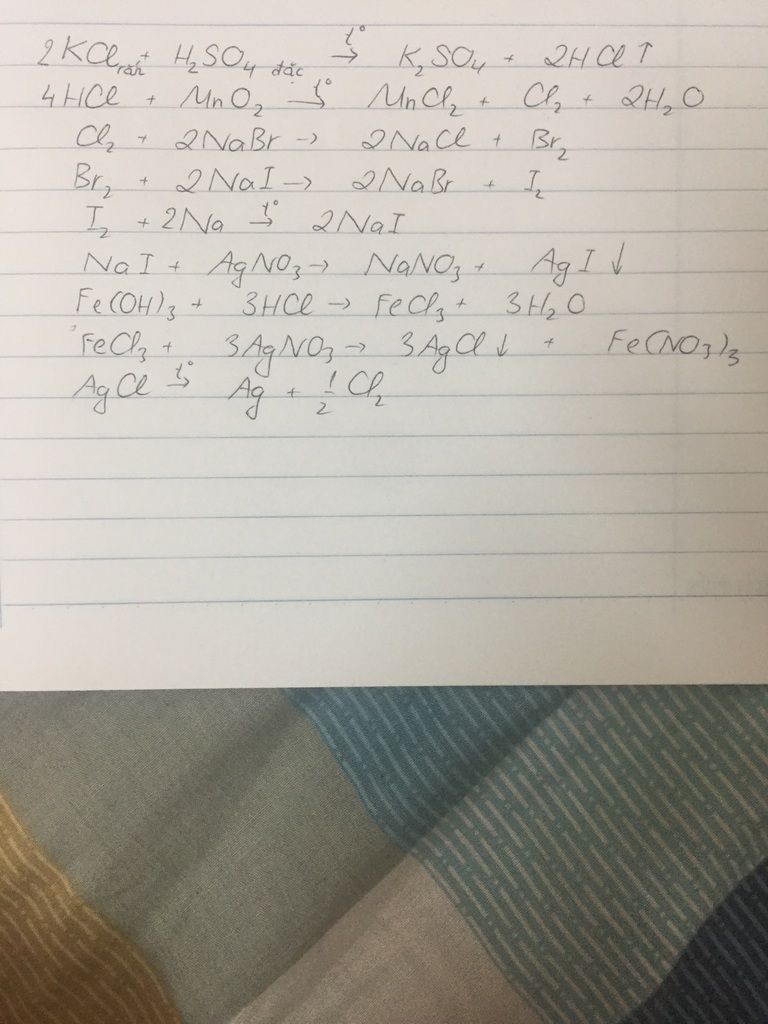 2KCl rắn + H₂SO₄ đặc →t° K₂SO₄ + 2HCl ↑
4HCl + MnO₂ →t° MnCl₂ + Cl₂ + 2H₂O
Cl₂ + 2NaBr → 2NaCl + Br₂
Br₂ + 2NaI → 2NaBr + I₂
I₂ + 2Na →t° 2NaI
NaI + AgNO₃ → NaNO₃ + AgI ↓
Fe(OH)₃ + 3HCl → FeCl₃ + 3H₂O
FeCl₃ + 3AgNO₃ → 3AgCl ↓ + Fe(NO₃)₃
AgCl →t° Ag + ½ Cl₂